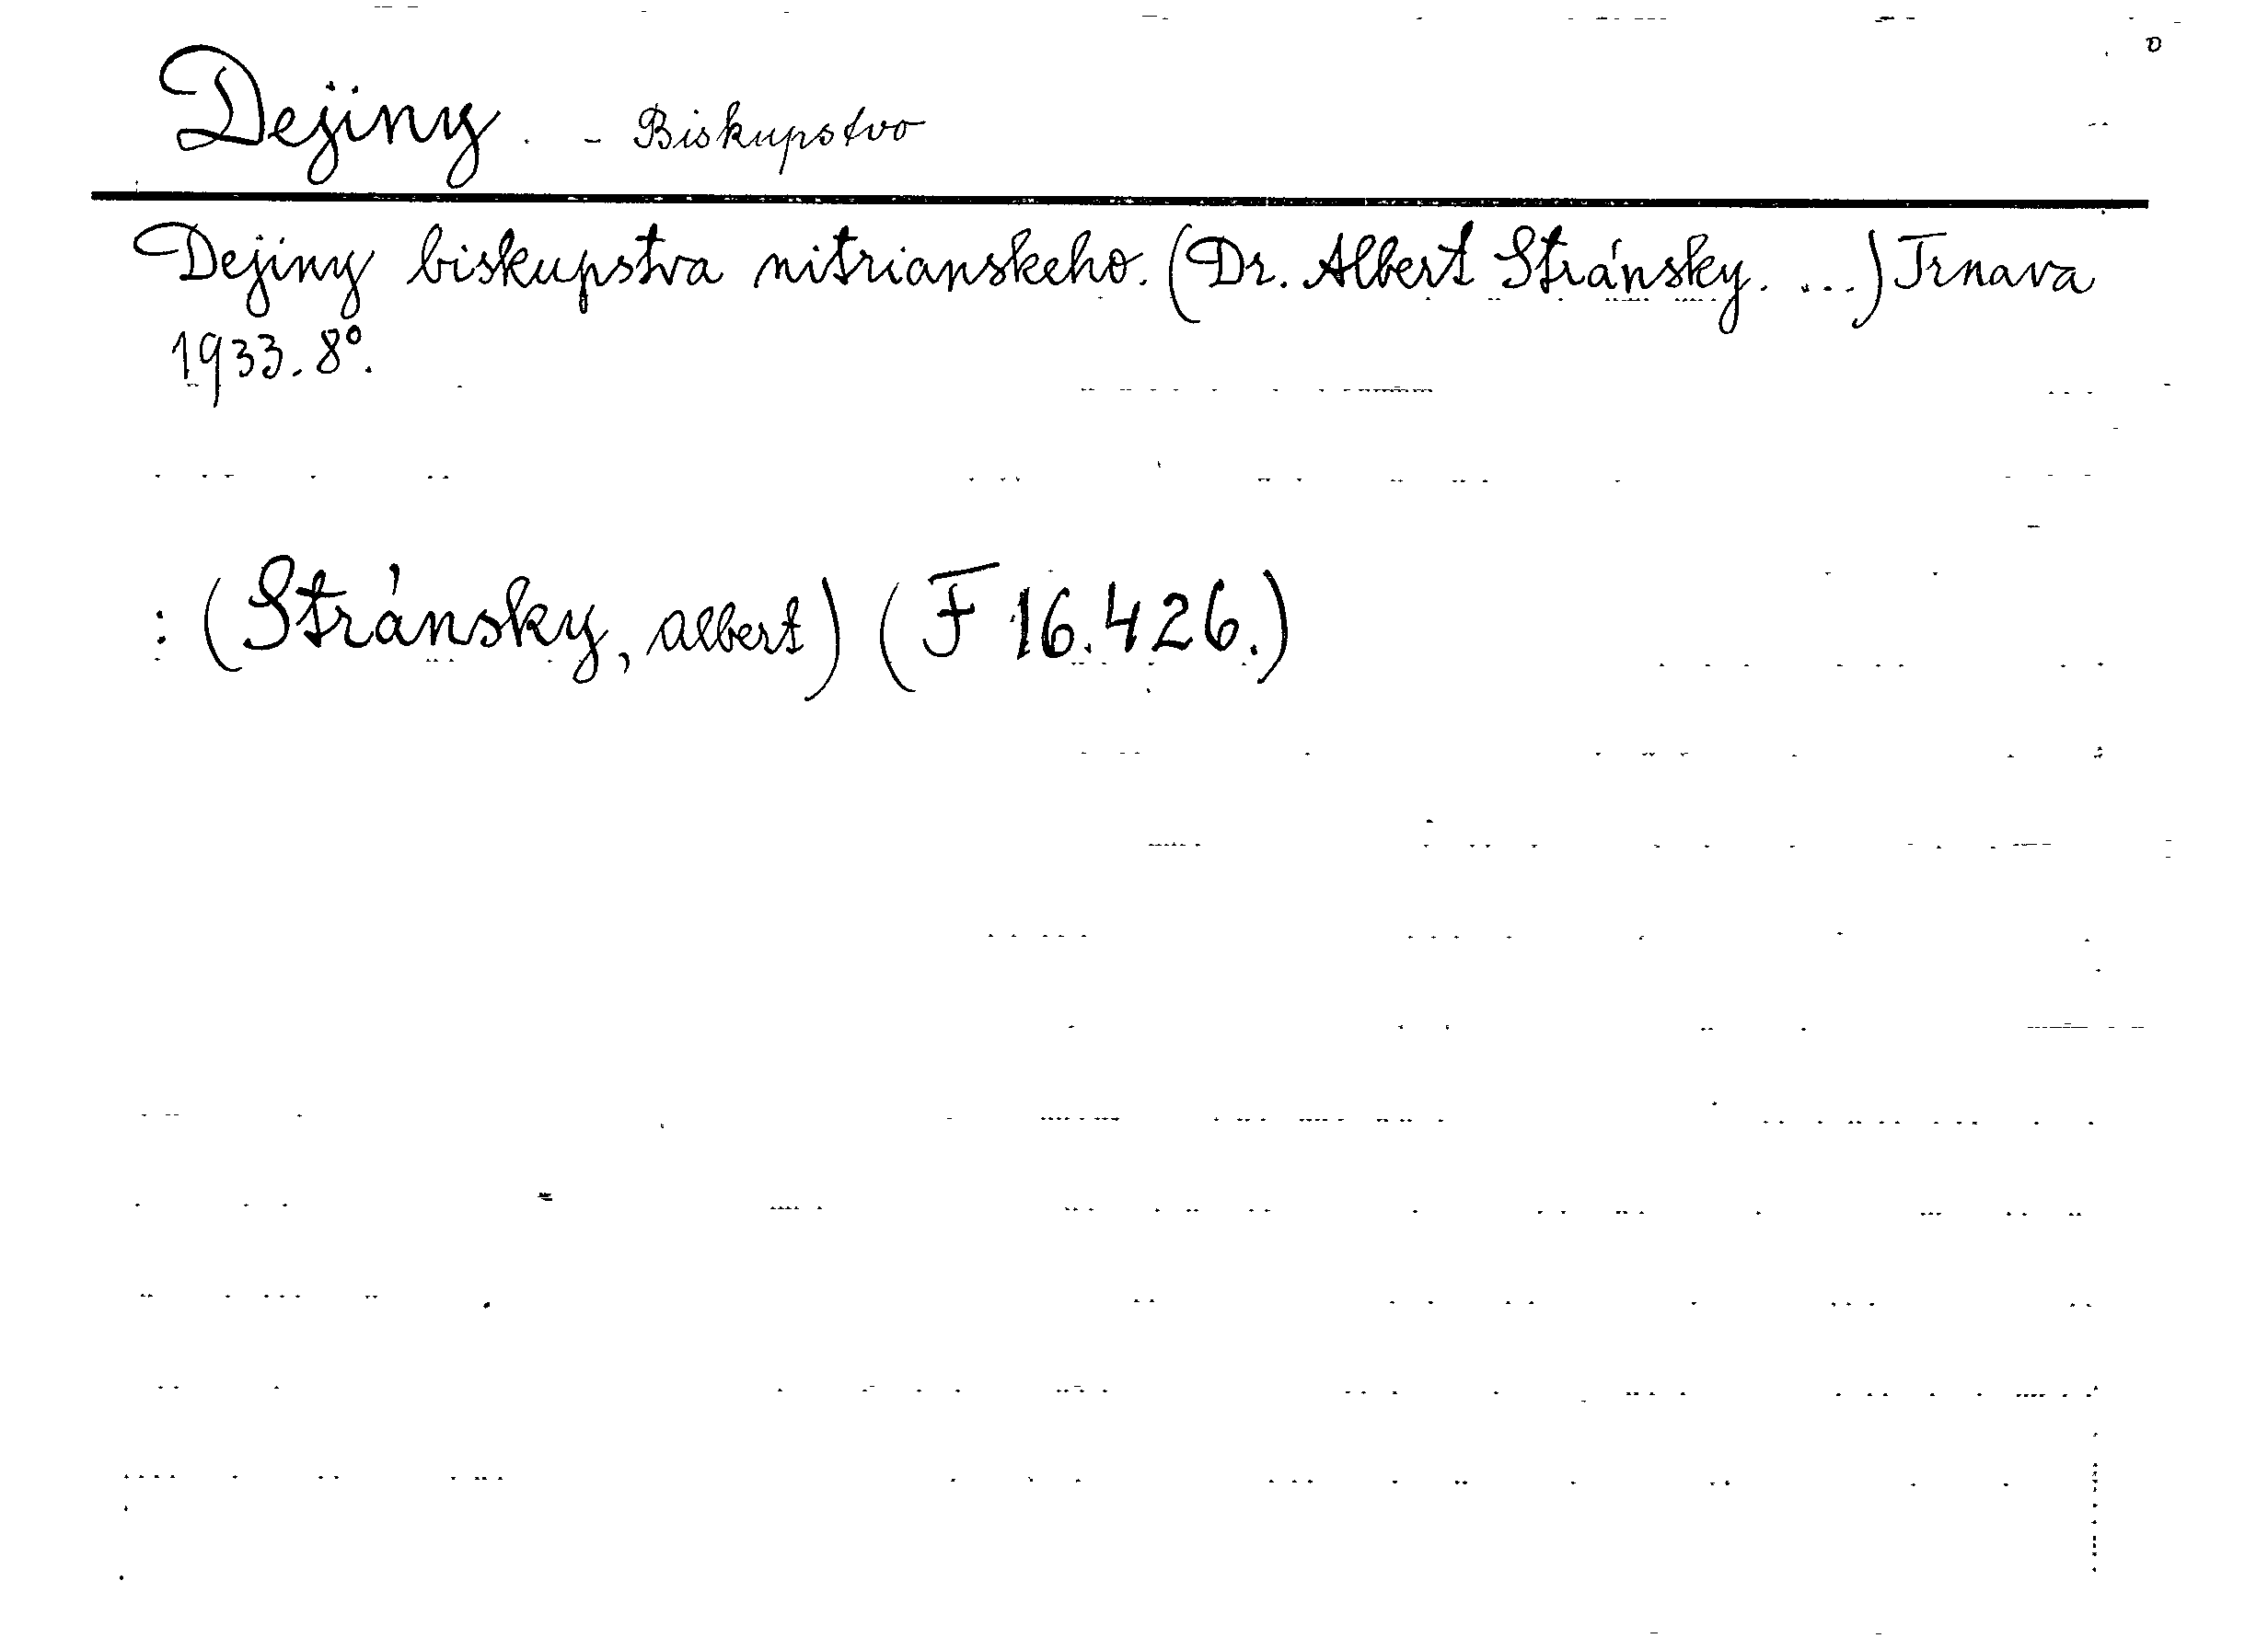 Dejiny. - Biskupstvo
Dejiny biskupstva nitrianskeho. (Dr. Albert Stránsky. ...) Trnava
1933. 8°.
: (Stránsky, Albert) (F 16.426.)